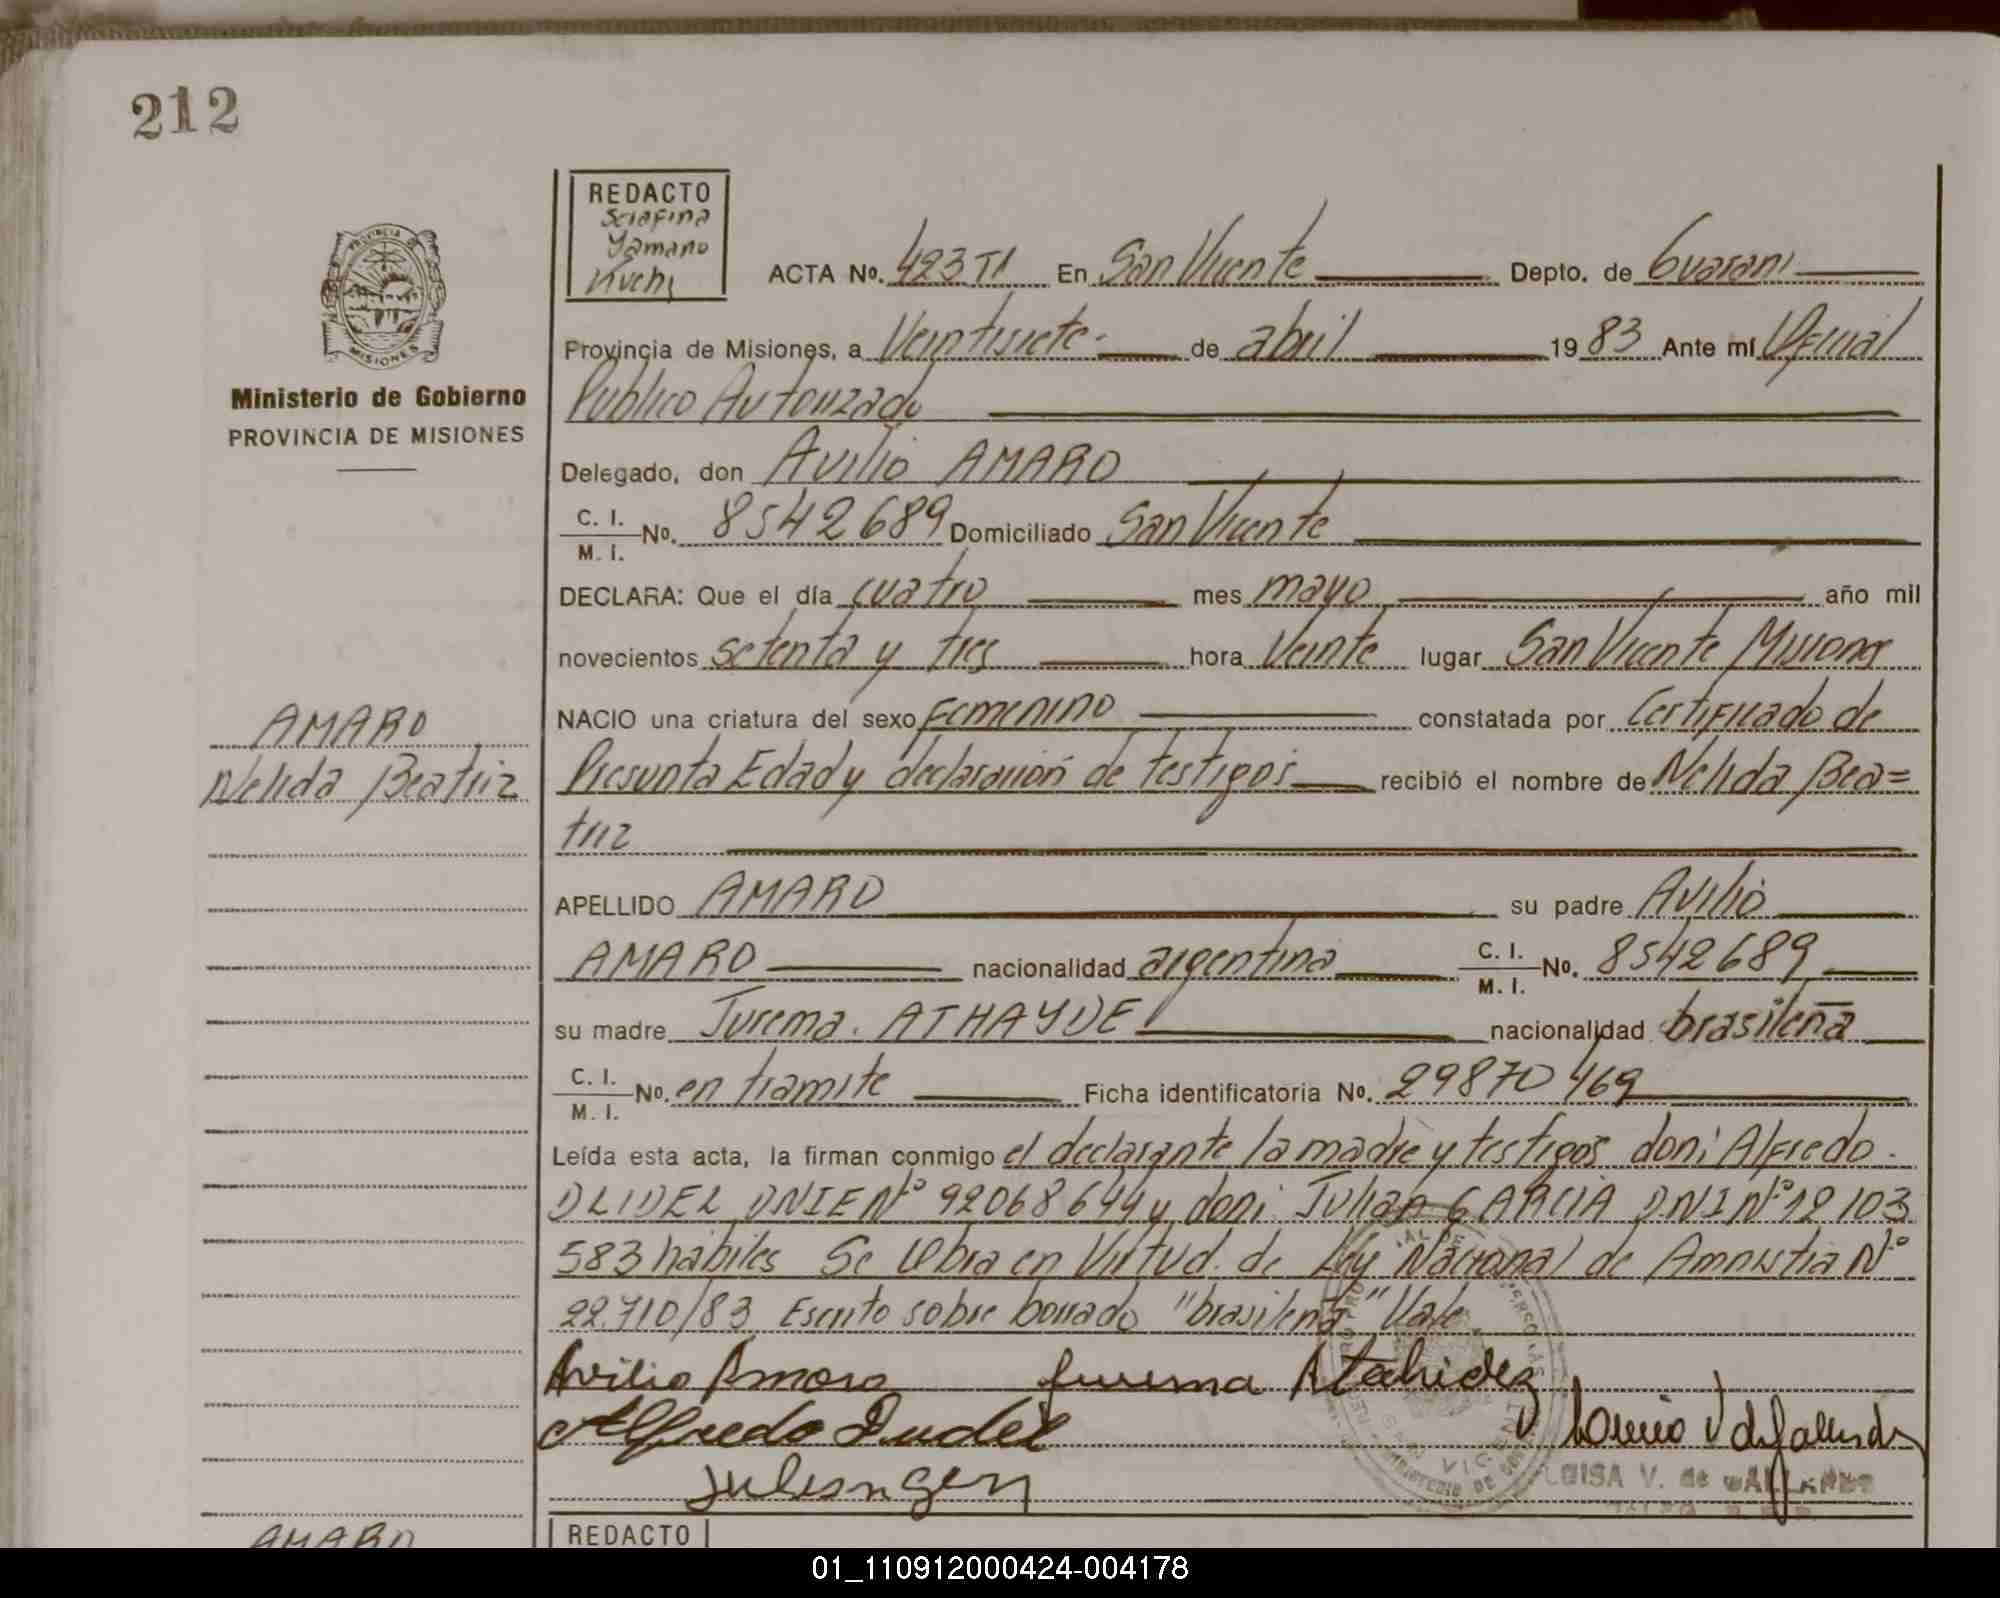 212
REDACTO
Serafina
Yamano
Kuchi
ACTA No. 423 TI En San Vicente Depto. de Guarani
PROVINCIA DE
MISIONES
Ministerio de Gobierno
PROVINCIA DE MISIONES
Provincia de Misiones, a Veintisiete de abril 1983 Ante mí Oficial
Publico Autorizado
Delegado, don Avilio AMARO
C. I.
M. I. No. 8542689 Domiciliado San Vicente
DECLARA: Que el día cuatro mes mayo año mil
novecientos setenta y tres hora Veinte lugar San Vicente Misiones
NACIO una criatura del sexo femenino constatada por Certificado de
Presunta Edad y declaración de testigos recibió el nombre de Nelida Bea=
triz
AMARO
Nelida Beatriz
APELLIDO AMARO su padre Avilio
AMARO nacionalidad argentina C. I.
M. I. No. 8542689
su madre Jurema. ATHAYDE nacionalidad brasileña
C. I.
M. I. No. en tramite Ficha identificatoria No. 29870469
Leída esta acta, la firman conmigo el declarante la madre y testigos don: Alfredo
DNIE Nº 92068644 y don: Julian GARCIA DNI Nº 12103
583 habiles Se labra en Virtud. de Ley Nacional de Amnistia Nº
22.710/83 Escrito sobre borrado "brasileña" Vale
Avilio Amaro Jurema
Alfredo
SAN VICENTE
LUISA V. de GALLARDO
AMARO
REDACTO
01_110912000424-004178